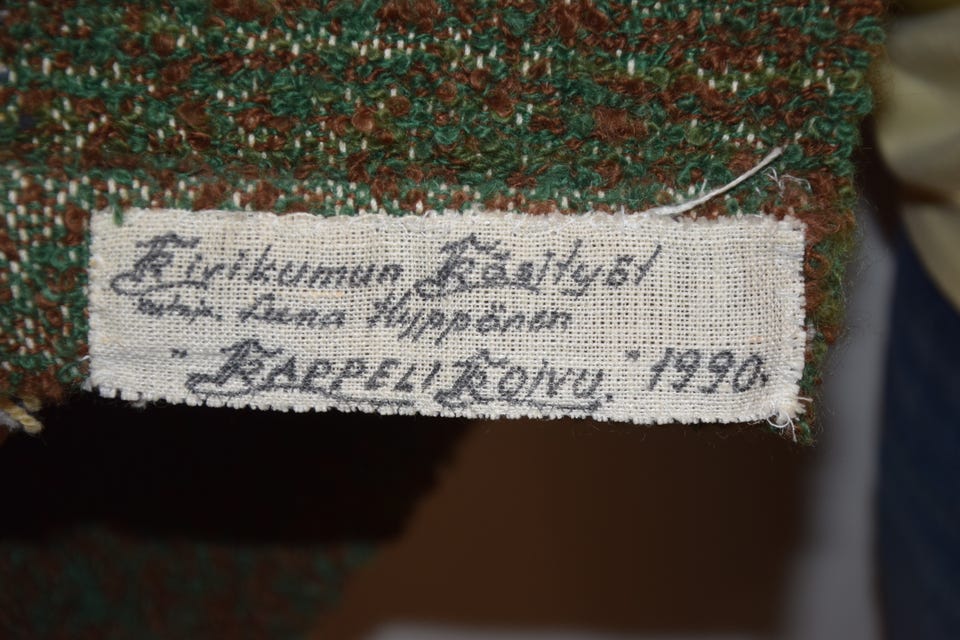 Kirikumun Käsityöt
Leena Hyppönen
"KAPPELI KOIVU." 1990.